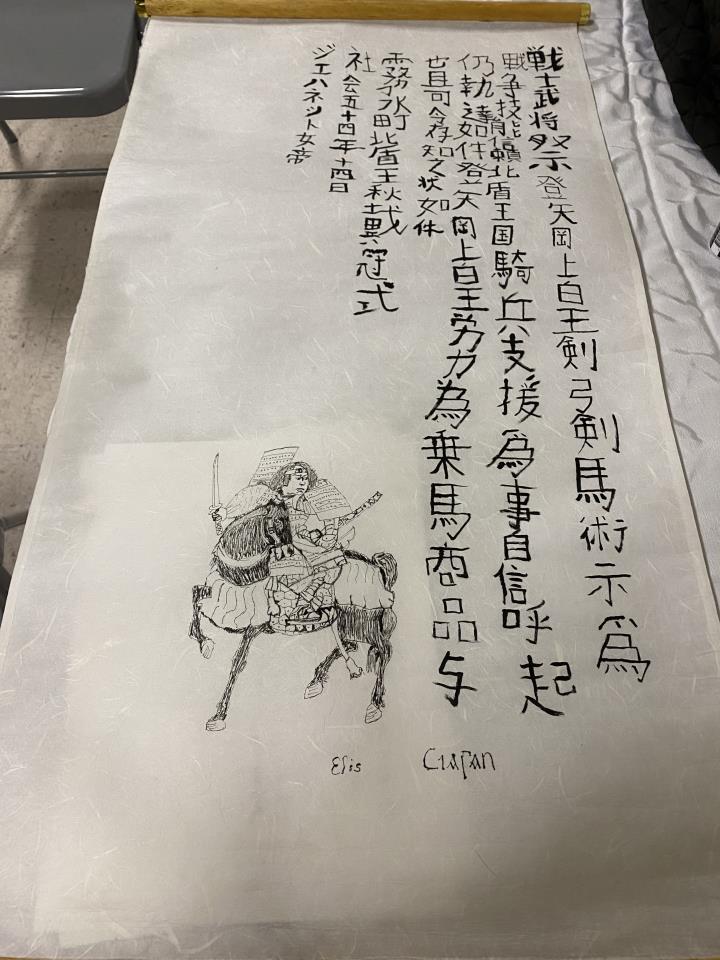 戦士武将祭示登矢岡上白王剣弓剣馬術示為
戦争技能信頼北盾王国騎兵支援為事自信呼起
仍執達如件登矢岡上白王労力為乗馬商品与
也且可令存知之状如件
霧北盾王秋異冠式
社会五十四年十四日
ジエハネット女帝
Elis